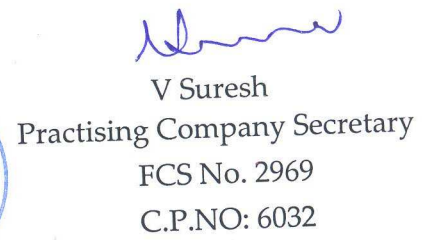 V Suresh
Practising Company Secretary
FCS No. 2969
C.P.NO: 6032